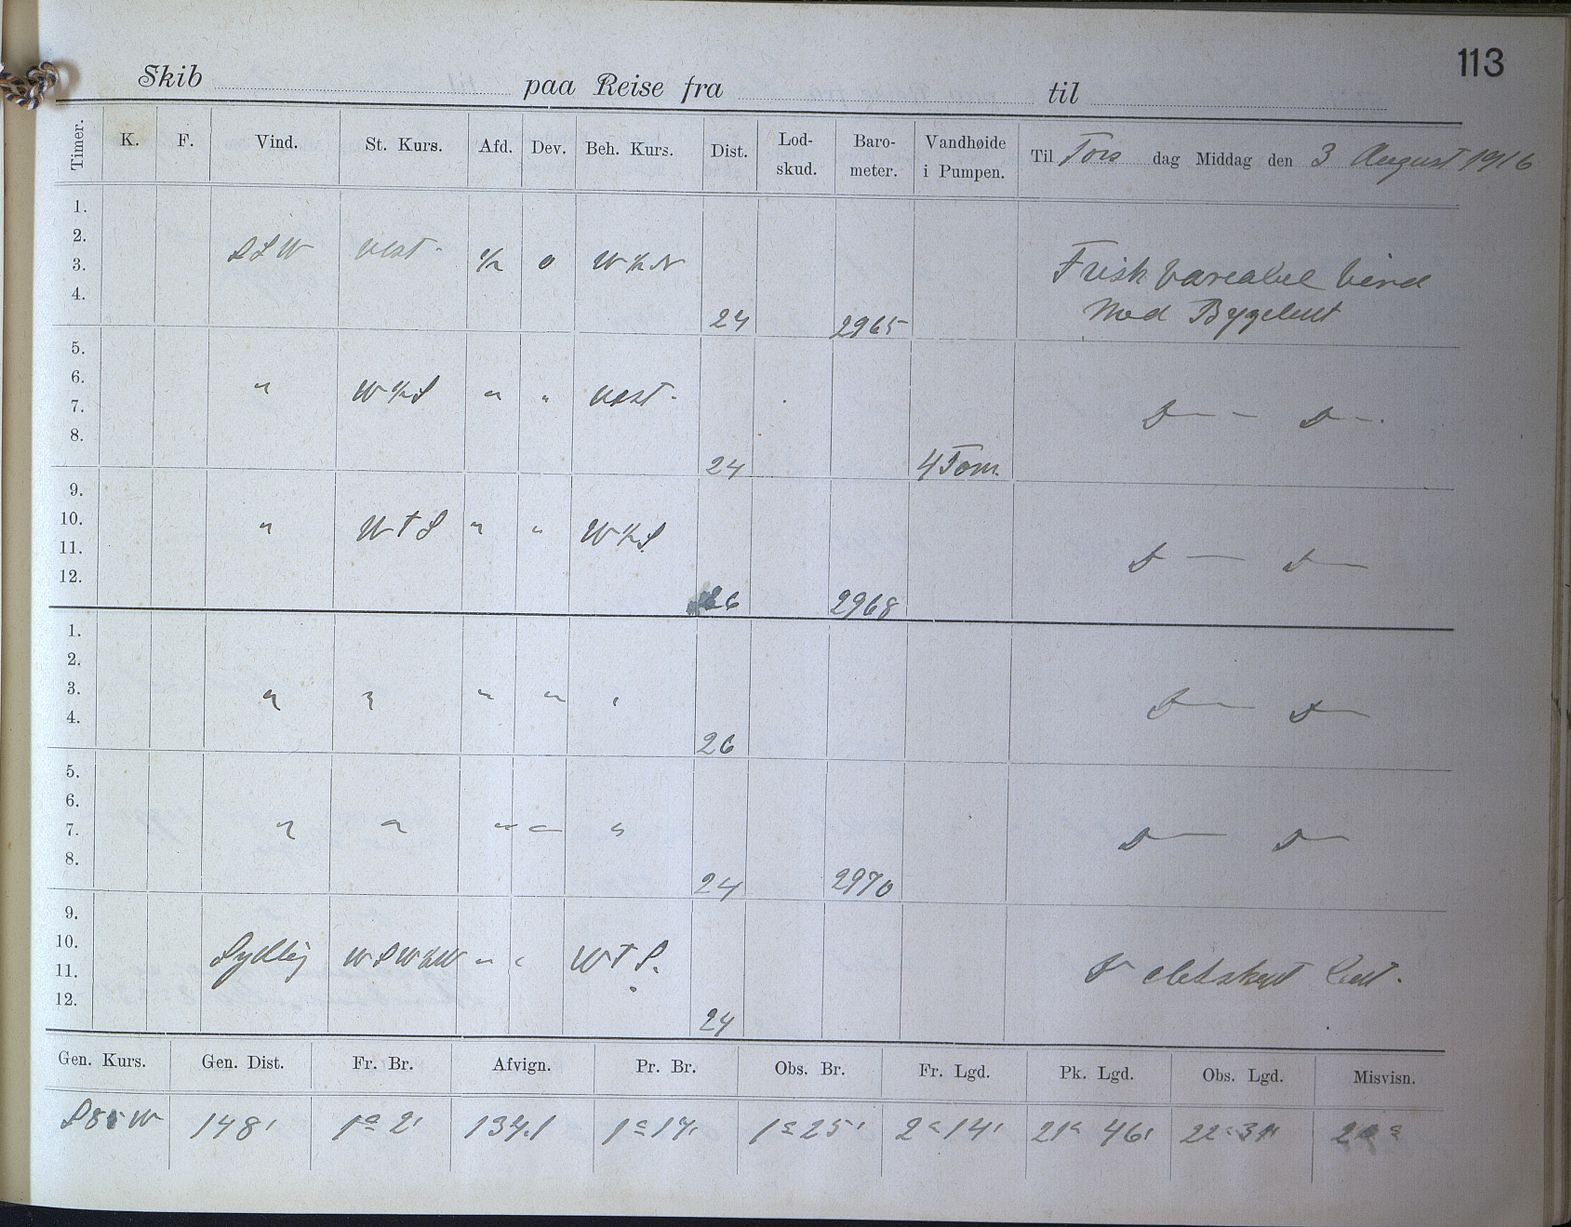 113
Skib paa Reise fra til
Timer. K. F. Vind. St. Kurs. Afd. Dev. Beh. Kurs. Dist. Lod-skud. Baro-meter. Vandhøide i Pumpen. Til Tors dag Middag den 3 August 1916
1.
2.
3. SSW vest. ½ 0 W½N Frisk Vareabel Vind
4. 24 2965 Med Bygeluft
5.
6. " W½S " " vest.
7. D — D —.
8. 24 4 Tom.
9.
10. " WTS " " W½S.
11. D — D —
12. 26 2968
1.
2.
3. " " " " "
4. D — D —
26
5.
6.
7. " " " — " D — D —
8. 24 2970
9.
10. Sydlig WSW½W " " WTS.
11. D Luft.
12. 24
Gen. Kurs. Gen. Dist. Fr. Br. Afvign. Pr. Br. Obs. Br. Fr. Lgd. Pk. Lgd. Obs. Lgd. Misvisn.
S85W 148' 1° 2' 137.1 1° 17' 1° 25' 2° 14' 21° 46' 22°